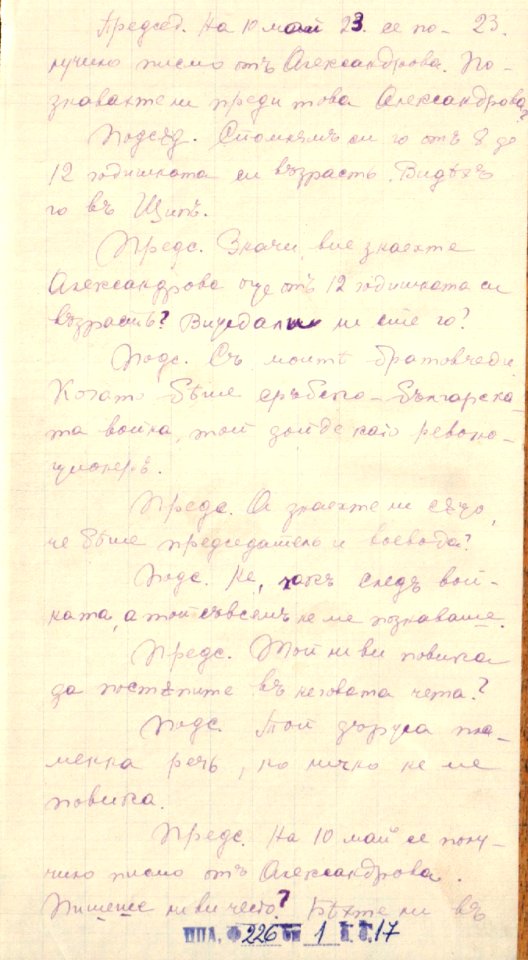 Председ. На 10 май 23. се по- 23.
лучило писмо отъ Александрова. По-
знавахте ли преди това Александрова?
Подсѫд. Спомнямъ си го отъ 8 до
12 годишната си възрасть. Видѣхъ
го въ Щипъ.
Предс. Значи, вие знаехте
Александрова още отъ 12 годишната си
възрасть? Виждали ли сте го?
Подс. Съ моитѣ братовчеди.
Когато бѣше сръбско-българска-
та война, той дойде като револю-
ционеръ.
Предс. А знаехте ли сѫщо,
че бѣше председатель и воевода?
Подс. Не, чакъ следъ вой-
ната, а той съвсемъ не ме познаваше.
Предс. Той ли ви повика
да постѫпите въ неговата чета?
Подс. Той държа пла-
менна речь, но лично не ме
повика.
Предс. На 10 май се полу-
чило писмо отъ Александрова.
Пишеше ли ви често? Бѣхте ли въ
ЦПА, Ф 226 оп 1 а. е. 17